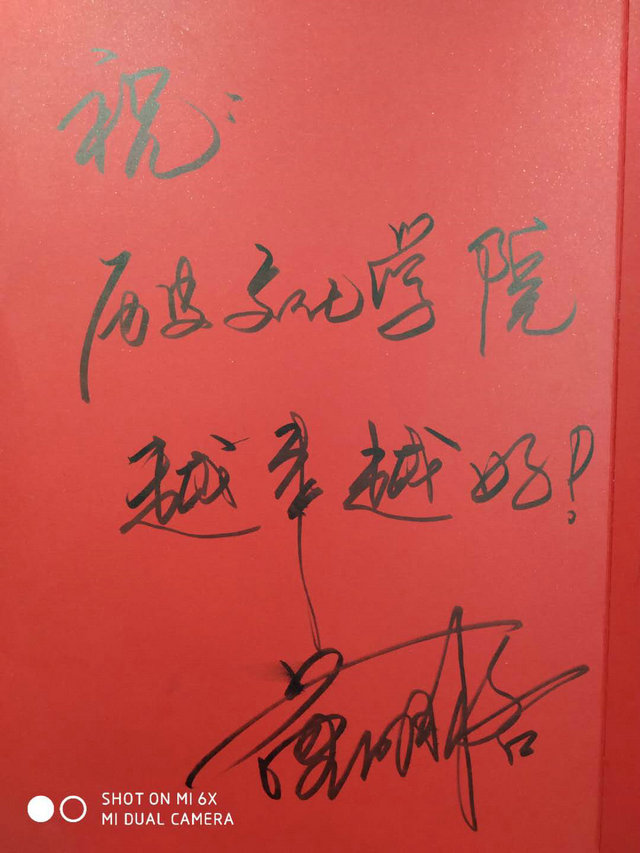 祝:
历史文化学院
越来越好!
SHOT ON MI 6X
MI DUAL CAMERA